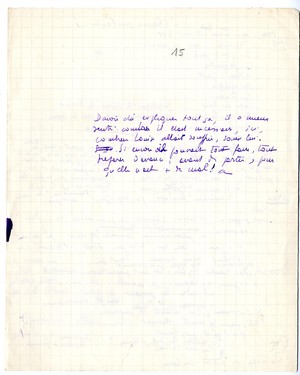 15
D'avoir dû expliquer tout ça, il a mieux
senti combien il était nécessaire, ici,
combien Louis allait souffrir, sans lui.
Si encore il pouvait tout faire, tout
préparer d'avance, avant de partir, pour
qu'elle n'ait + de mal!